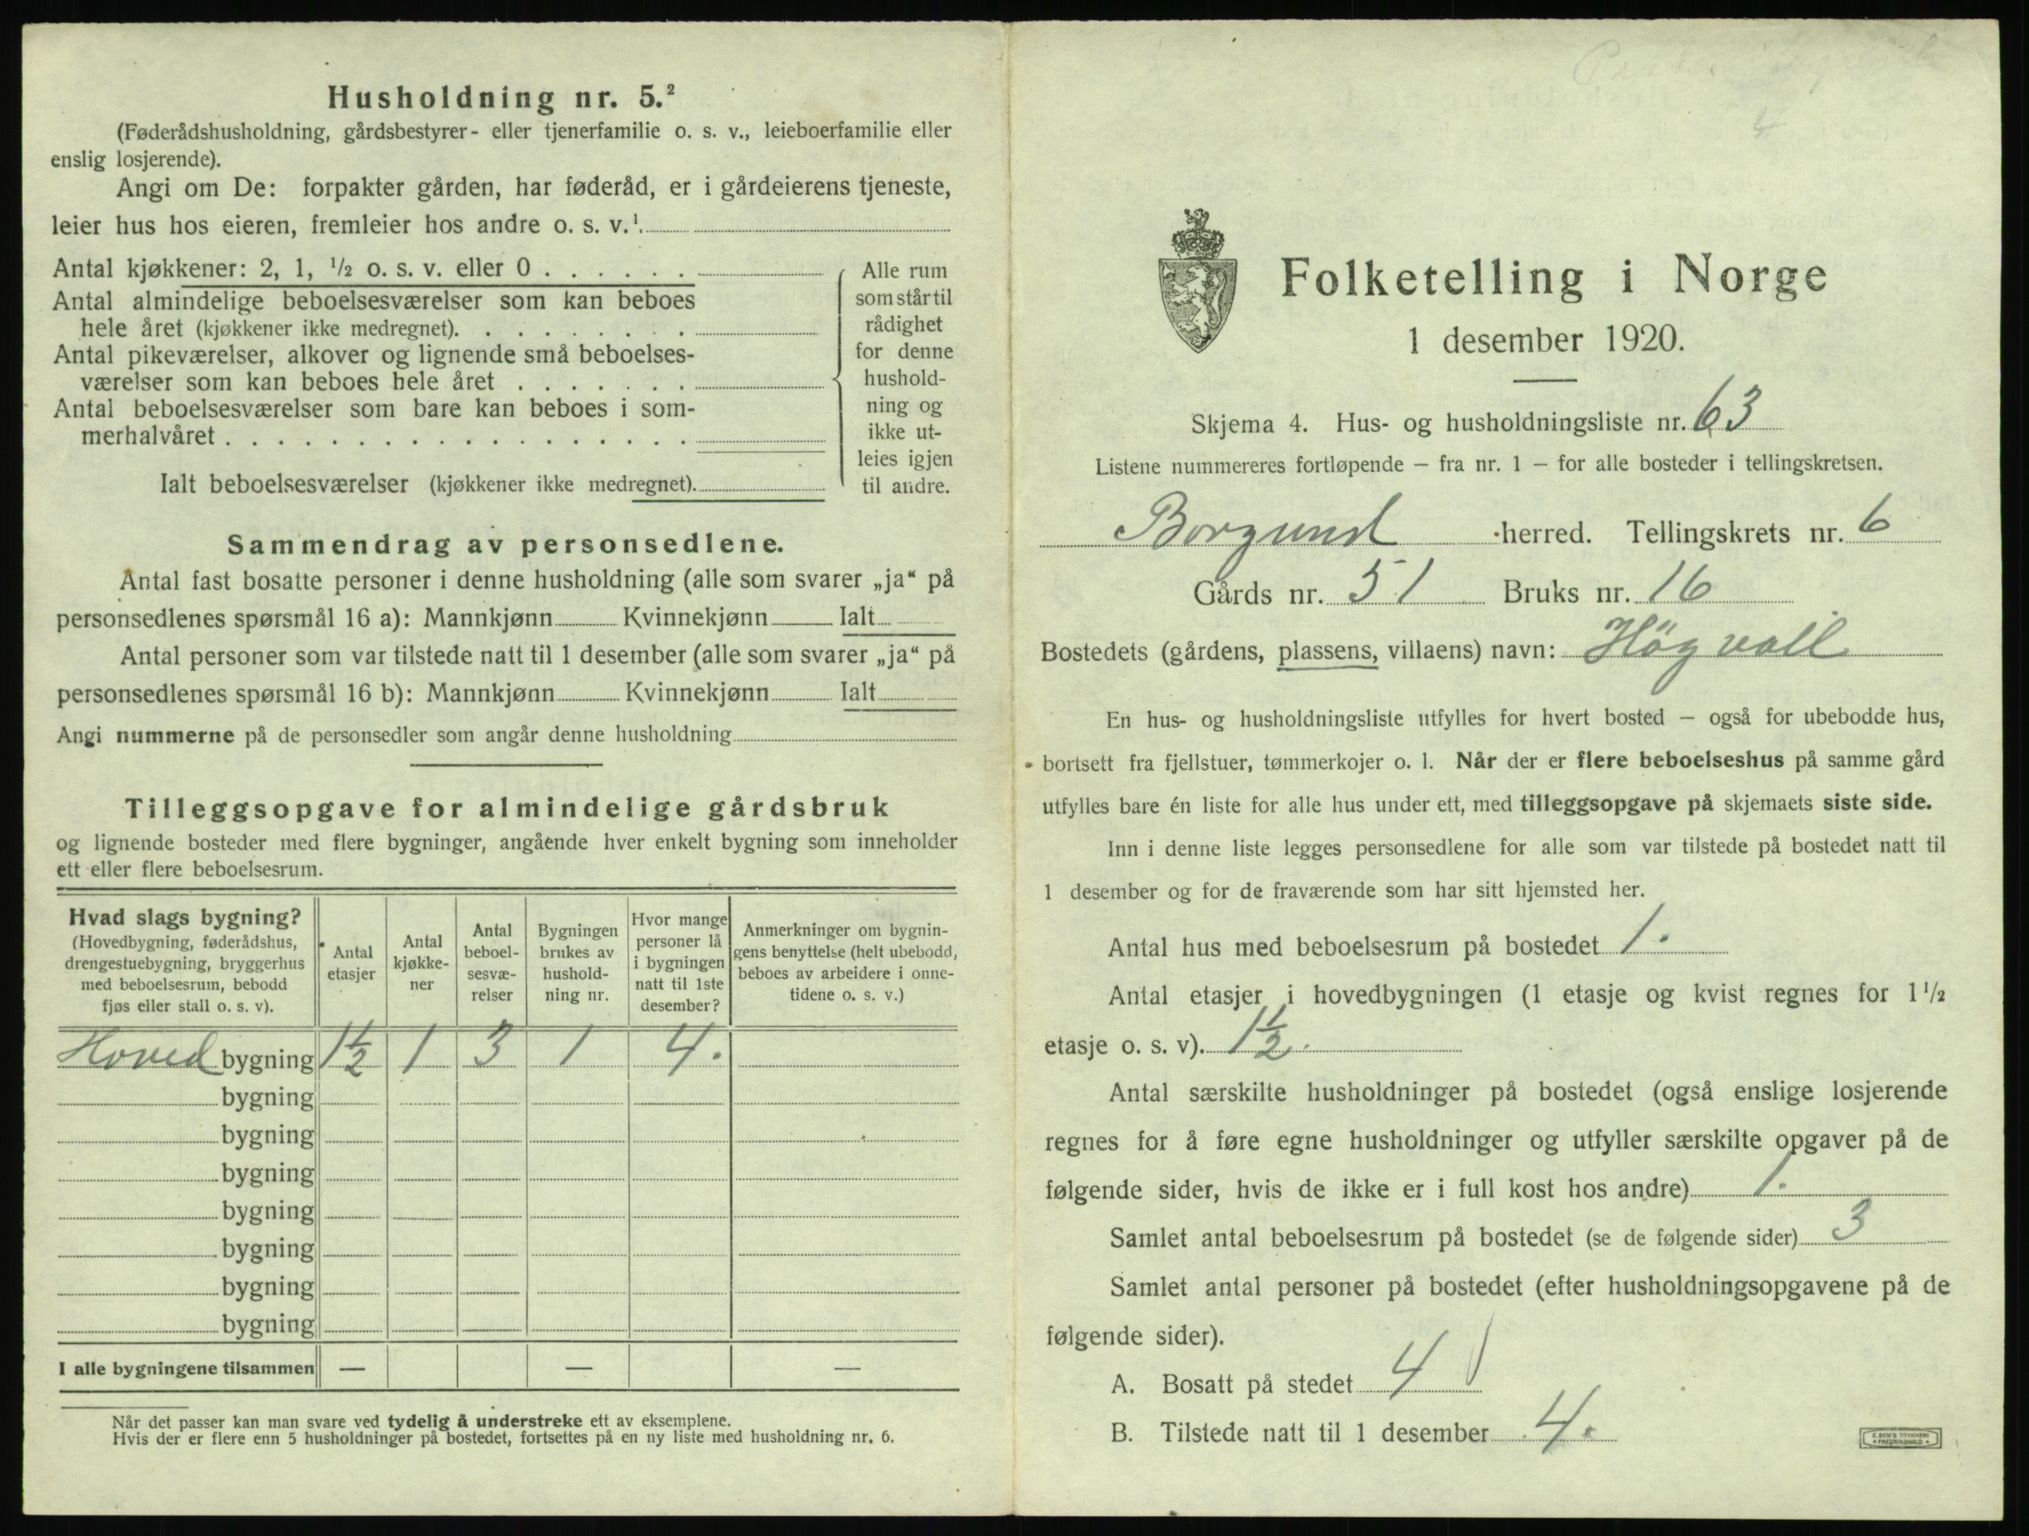 Husholdning nr. 5.²
(Føderådshusholdning, gårdsbestyrer- eller tjenerfamilie o. s. v., leieboerfamilie eller
enslig losjerende).
Angi om De: forpakter gården, har føderåd, er i gårdeierens tjeneste,
leier hus hos eieren, fremleier hos andre o. s. v.¹.
Antal kjøkkener: 2, 1, ½ o. s. v. eller 0 . . . . . .
Antal almindelige beboelsesværelser som kan beboes
hele året (kjøkkener ikke medregnet). . . . . . . . .
Antal pikeværelser, alkover og lignende små beboelses-
værelser som kan beboes hele året . . . . . . .
Antal beboelsesværelser som bare kan beboes i som-
merhalvåret . . . . . . . . . . . . . . . . . .
Ialt beboelsesværelser (kjøkkener ikke medregnet).
Alle rum
som står til
rådighet
for denne
hushold-
ning og
ikke ut-
leies igjen
til andre.
Sammendrag av personsedlene.
Antal fast bosatte personer i denne husholdning (alle som svarer „ja“ på
personsedlenes spørsmål 16 a): Mannkjønn Kvinnekjønn Ialt
Antal personer som var tilstede natt til 1 desember (alle som svarer „ja“ på
personsedlenes spørsmål 16 b): Mannkjønn Kvinnekjønn Ialt
Angi nummerne på de personsedler som angår denne husholdning
Tilleggsopgave for almindelige gårdsbruk
og lignende bosteder med flere bygninger, angående hver enkelt bygning som inneholder
ett eller flere beboelsesrum.
Hvad slags bygning?
(Hovedbygning, føderådshus,
drengestuebygning, bryggerhus
med beboelsesrum, bebodd
fjøs eller stall o. s. v).
Antal
etasjer
Antal
kjøkke-
ner
Antal
beboel-
sesvæ-
relser
Bygningen
brukes av
hushold-
ning nr.
Hvor mange
personer lå
i bygningen
natt til 1ste
desember?
Anmerkninger om bygnin-
gens benyttelse (helt ubebodd,
beboes av arbeidere i onne-
tidene o. s. v.)
Hoved bygning 1½ 1 3 1 4.
bygning
bygning
bygning
bygning
bygning
bygning
bygning
I alle bygningene tilsammen — — —
Når det passer kan man svare ved tydelig å understreke ett av eksemplene.
Hvis der er flere enn 5 husholdninger på bostedet, fortsettes på en ny liste med husholdning nr. 6.
4
Folketelling i Norge
1 desember 1920.
Skjema 4. Hus- og husholdningsliste nr. 63
Listene nummereres fortløpende – fra nr. 1 – for alle bosteder i tellingskretsen.
Borgund herred. Tellingskrets nr. 6
Gårds nr. 51 Bruks nr. 16
Bostedets (gårdens, plassens, villaens) navn: Högvoll
En hus- og husholdningsliste utfylles for hvert bosted – også for ubebodde hus,
bortsett fra fjellstuer, tømmerkojer o. l. Når der er flere beboelseshus på samme gård
utfylles bare én liste for alle hus under ett, med tilleggsopgave på skjemaets siste side.
Inn i denne liste legges personsedlene for alle som var tilstede på bostedet natt til
1 desember og for de fraværende som har sitt hjemsted her.
Antal hus med beboelsesrum på bostedet 1.
Antal etasjer i hovedbygningen (1 etasje og kvist regnes for 1½
etasje o. s. v). 1½.
Antal særskilte husholdninger på bostedet (også enslige losjerende
regnes for å føre egne husholdninger og utfyller særskilte opgaver på de
følgende sider, hvis de ikke er i full kost hos andre) 1.
Samlet antal beboelsesrum på bostedet (se de følgende sider) 3
Samlet antal personer på bostedet (efter husholdningsopgavene på de
følgende sider).
A. Bosatt på stedet 4
B. Tilstede natt til 1 desember 4.